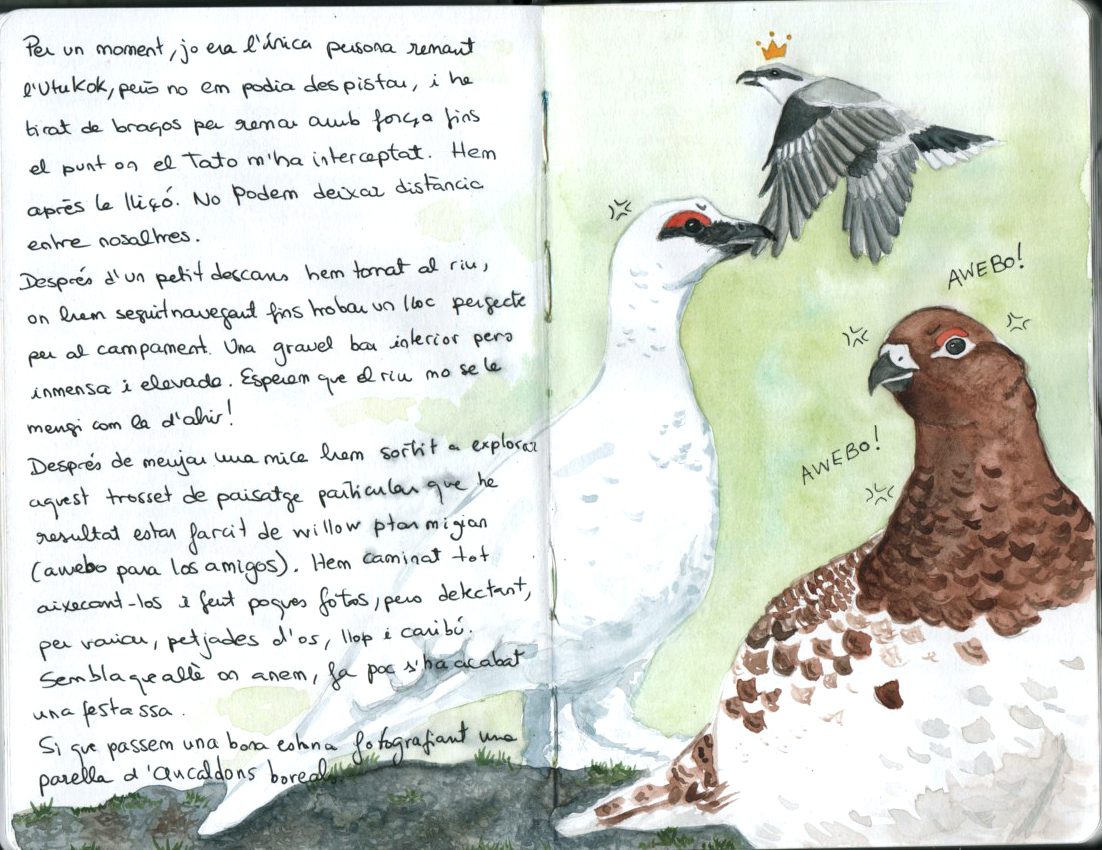 Per un moment, jo era l'única persona remant
l'Utukok, però no em podia despistar, i he
tirat de braços per remar amb força fins
el punt on el Tato m'ha interceptat. Hem
après le lliçó. No Podem deixar distància
entre nosaltres.
Després d'un petit descans hem tornat al riu,
on hem seguit navegant fins trobar un lloc perfecte
per al campament. Una gravel bar interior pero
inmensa i elevada. Esperem que el riu no se le
mengi com la d'ahir!
Després de menjar una mica hem sortit a explorar
aquest trosset de paisatge particular que he
resultat estar farcit de willow ptarmigian
(awebo para los amigos). Hem caminat tot
aixecant-los i fent poques fotos, pero detectant,
per variar, petjades d'os, llop i caribú.
Sembla que allè on anem, fa poc s'ha acabat
una festassa.
Si que passem una bona estona fotografiant una
parella d'Qucaldons boreals.
AWEBO!
AWEBO!